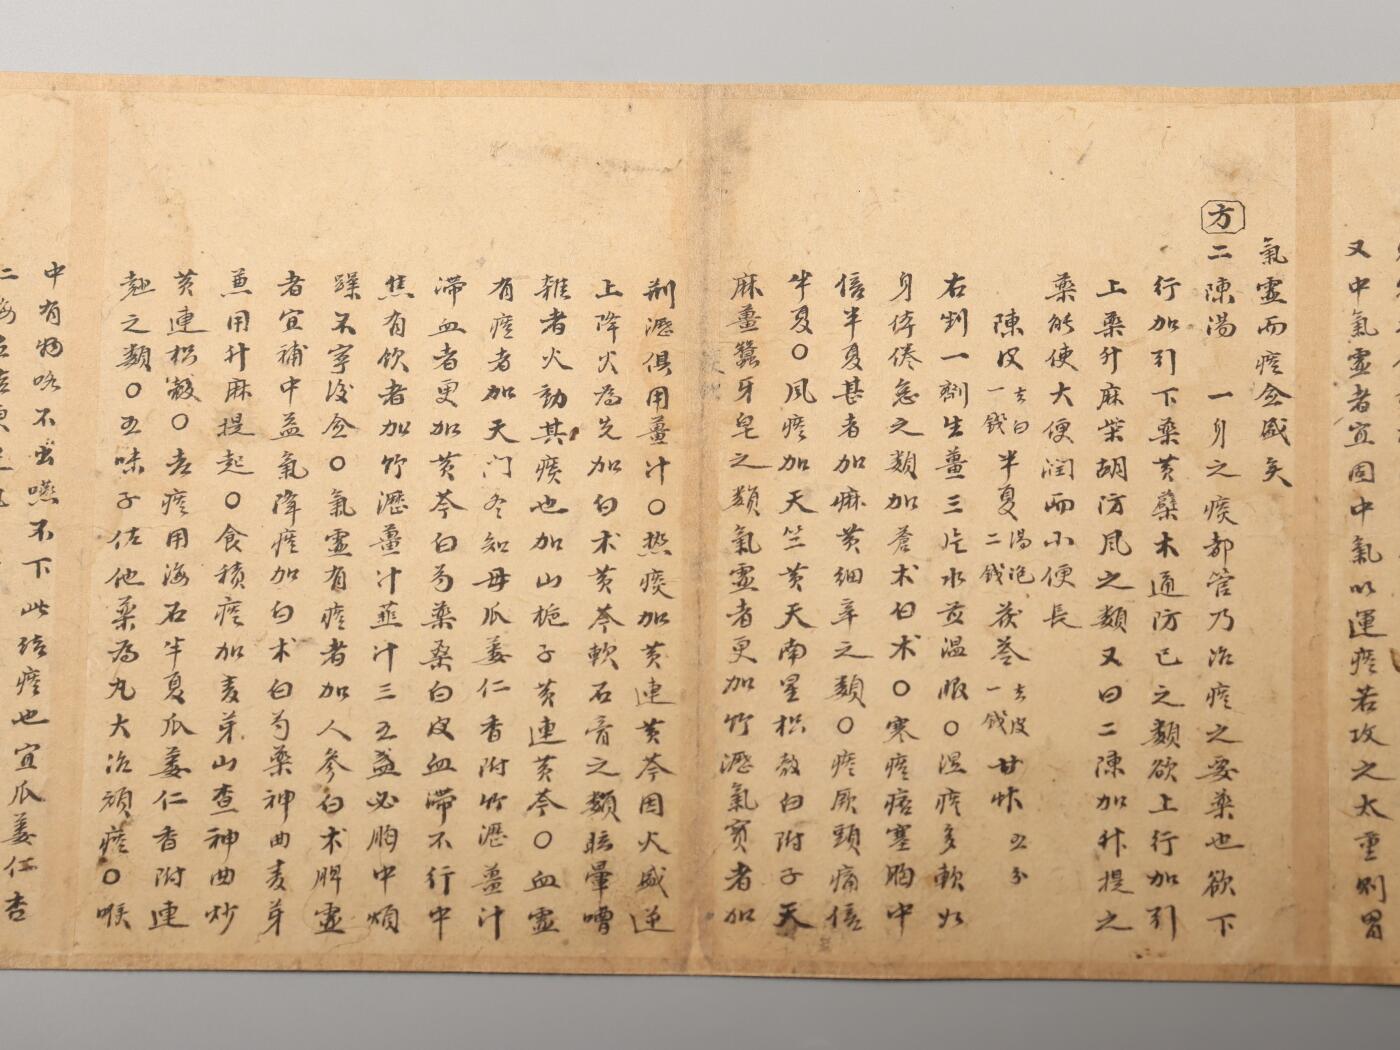 又中氣虛者宜固中氣以運痰若攻之太重則胃
氣虛而痰愈盛矣
方 二陳湯 一身之痰都管乃治痰之要藥也欲下
行加引下藥黃蘗木通防已之類欲上行加引
上藥升麻柴胡防风之類又曰二陳加升提之
藥能使大便潤而小便長
陳皮 去白一錢 半夏 湯泡二錢 茯苓 去皮一錢 甘艸 五分
右剉一劑生薑三片水煎温服〇濕痰多軟如
身体倦怠之類加蒼术白术〇寒痰痞塞胸中
倍半夏甚者加麻黃細辛之類〇痰厥頭痛倍
半夏〇风痰加天竺黃天南星枳殼白附子天
麻薑蠶牙皂之類氣虛者更加竹瀝氣實者加
荊瀝俱用薑汁〇熱痰加黃連黃芩因火盛逆
上降火為先加白术黃芩軟石膏之類眩暈嘈
雜者火動其痰也加山梔子黃連黃芩〇血虛
有痰者加天门冬知母瓜蔞仁香附竹瀝薑汁
滯血者更加黃芩白芍藥桑白皮血滯不行中
焦有飲者加竹瀝薑汁韮汁三五盞必胸中煩
躁不寧後愈〇氣虛有痰者加人參白术脾虛
者宜補中益氣降痰加白术白芍藥神曲麦芽
兼用升麻提起〇食積痰加麦芽山查神曲炒
黃連枳殼〇老痰用海石半夏瓜蔞仁香附連
翹之類〇五味子佐他藥為丸大治頑痰〇喉
中有物咯不出嚥不下此 痰也宜瓜蔞仁杏